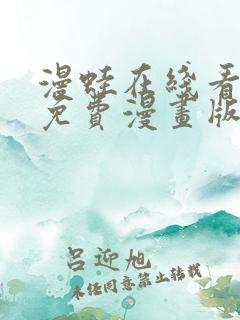 漫蛙在綫看
免費漫畫版
吕迎旭
未经同意禁止转载